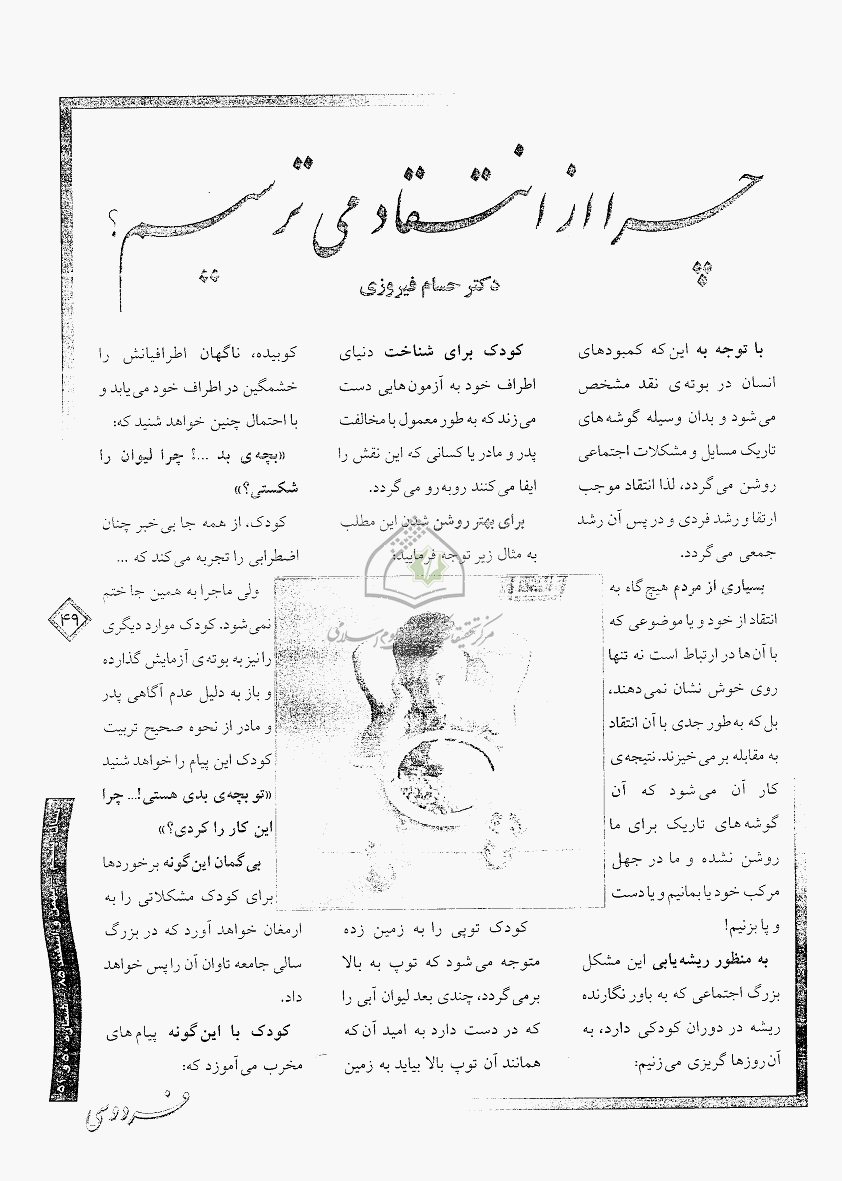 چرا از انتقاد می ترسیم؟
دکتر حسام فیروزی
با توجه به این که کمبودهای
انسان در بوته ی نقد مشخص
می شود و بدان وسیله گوشه های
تاریک مسایل و مشکلات اجتماعی
روشن می گردد، لذا انتقاد موجب
ارتقا و رشد فردی و در پس آن رشد
جمعی می گردد.
بسیاری از مردم هیچ گاه به
انتقاد از خود و یا موضوعی که
با آن ها در ارتباط است نه تنها
روی خوش نشان نمی دهند،
بل که به طور جدی با آن انتقاد
به مقابله بر می خیزند. نتیجه ی
کار آن می شود که آن
گوشه های تاریک برای ما
روشن نشده و ما در جهل
مرکب خود یا بمانیم و یا دست
و پا بزنیم!
به منظور ریشه یابی این مشکل
بزرگ اجتماعی که به باور نگارنده
ریشه در دوران کودکی دارد، به
آن روزها گریزی می زنیم:
کودک برای شناخت دنیای
اطراف خود به آزمون هایی دست
می زند که به طور معمول با مخالفت
پدر و مادر یا کسانی که این نقش را
ایفا می کنند روبه رو می گردد.
برای بهتر روشن شدن این مطلب
به مثال زیر توجه فرمایید:
کودک توپی را به زمین زده
متوجه می شود که توپ به بالا
برمی گردد، چندی بعد لیوان آبی را
که در دست دارد به امید آن که
همانند آن توپ بالا بیاید به زمین
کوبیده، ناگهان اطرافیانش را
خشمگین در اطراف خود می یابد و
با احتمال چنین خواهد شنید که:
«بچه ی بد ...! چرا لیوان را
شکستی؟»
کودک، از همه جا بی خبر چنان
اضطرابی را تجربه می کند که ...
ولی ماجرا به همین جا ختم
نمی شود. کودک موارد دیگری
را نیز به بوته ی آزمایش گذارده
و باز به دلیل عدم آگاهی پدر
و مادر از نحوه صحیح تربیت
کودک این پیام را خواهد شنید
«تو بچه ی بدی هستی!... چرا
این کار را کردی؟»
بی گمان این گونه برخوردها
برای کودک مشکلاتی را به
ارمغان خواهد آورد که در بزرگ
سالی جامعه تاوان آن را پس خواهد
داد.
کودک با این گونه پیام های
مخرب می آموزد که:
۴۹
بهمن و اسفند ۸۵ شماره ۵۰ و ۵۱
فردوسی